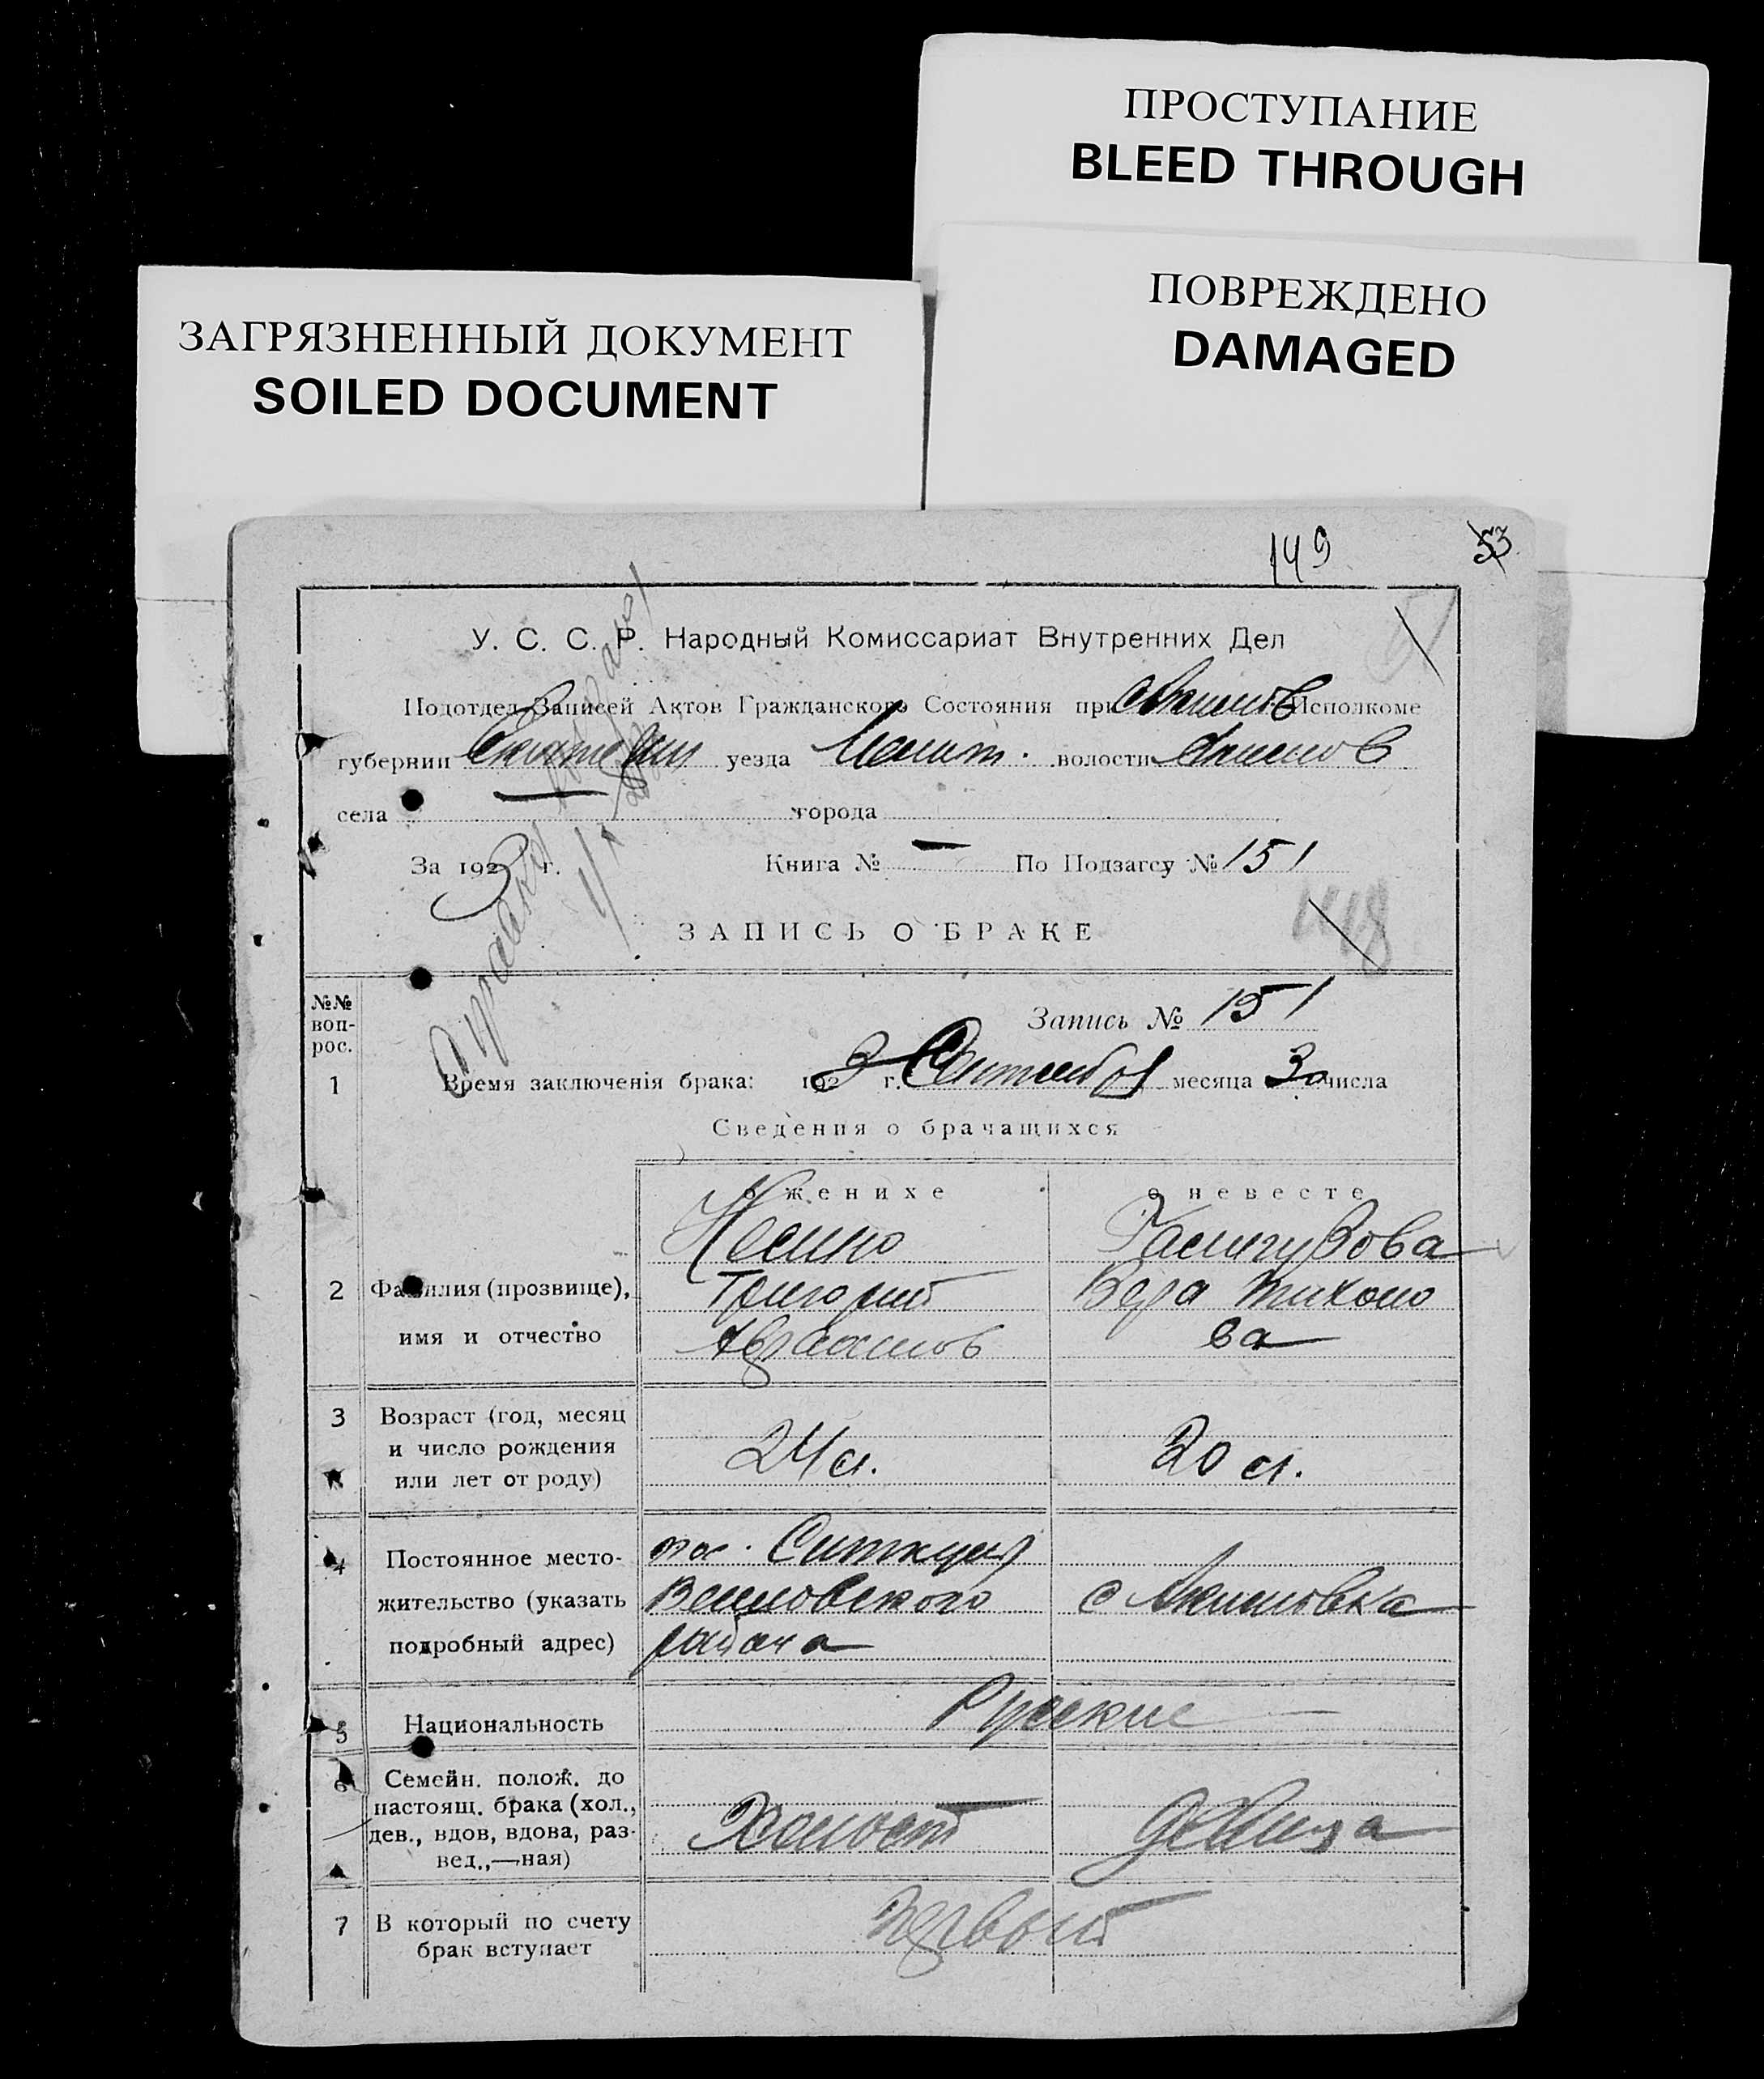 ПРОСТУПАНИЕ
BLEED THROUGH
ПОВРЕЖДЕНО
DAMAGED
ЗАГРЯЗНЕННЫЙ ДОКУМЕНТ
SOILED DOCUMENT
149 53
У. С. С. Р. Народный Комиссариат Внутренних Дел
Подотдел Записей Актов Гражданского Состояния при Акимов Исполкоме
губернии уезда Мелит. волости Акимов
села города
За 1923 г. Книга № — По Подзагсу № 151
148
ЗАПИСЬ О БРАКЕ
№№ воп-рос.
Запись № 151
1 Время заключенія брака: 1923 г. Сентября месяца 30 числа
Сведения о брачащихся
о женихе о невесте
2 Фамилия (прозвище),
имя и отчество
Григорий
Авраамов
Вера Тихоно
ва
3 Возраст (год, месяц
и число рождения
или лет от роду)
24 л. 20 л.
4 Постоянное место-
жительство (указать
подробный адрес)
района
с Акимовка
5 Национальность Русские
6 Семейн. полож. до
настоящ. брака (хол.,
дев., вдов, вдова, раз-
вед.,—ная)
Холост девица
7 В который по счету
брак вступает
Первый